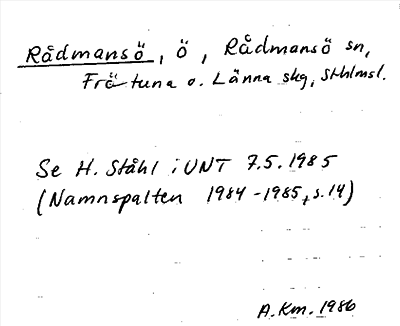 Rådmansö, ö, Rådmansö sn,
Frötuna o. Länna skg, Sthlmsl.
Se H. Ståhl i UNT 7.5.1985
(Namnspalten 1984-1985, s.14)
A.Km. 1986